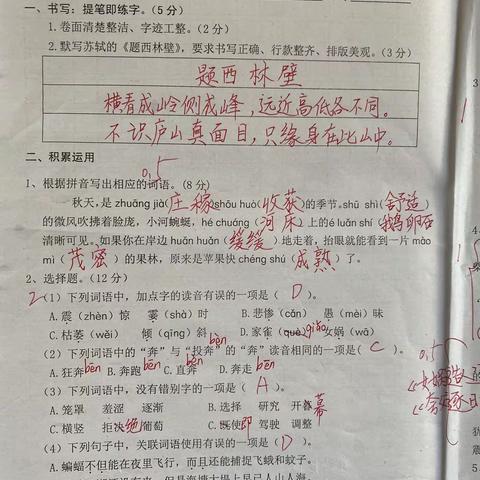 一、书写：提笔即练字。（5分）
1.卷面清楚整洁、字迹工整。（2分）
2.默写苏轼的《题西林壁》，要求书写正确、行款整齐、排版美观。（3分）
题西林壁
横看成岭侧成峰，远近高低各不同。
不识庐山真面目，只缘身在此山中。
二、积累运用
0.5
1、根据拼音写出相应的词语。（8分）
一秋天，是 zhuāng jià（庄稼）shōu huò（收获）的季节。shū shì（舒适）
的微风吹拂着脸庞，小河蜿蜒，hé chuáng（河床）上的é luǎn shí（鹅卵石）
清晰可见。如果你在岸边 huǎn huǎn（缓缓）地走着，抬眼就能看到一片 mào
mì（茂密）的果林，原来是苹果快 chéng shú（成熟）了。
2、选择题。（12分）
2（1）下列词语中，加点字的读音有误的一项是（D）。
A.震（zhèn）惊 霎（shà）时 B.悲惨（cǎn） 愚（mèi）昧
C.枯萎（wěi） 倾（qīng）斜 D.家雀（què）qiǎo 女娲（wā）
（2）下列词语中的“奔”与“投奔”的“奔”读音相同的一项是（C）。
bèn
A.狂奔 bēn B.奔跑 bēn C.直奔 bèn D.奔走 bēn
0.5
（3）下列词语中，没有错别字的一项是（A）。
《女娲
《夸父逐日
A.笼罩 羞涩 逐渐 B.选择 研究 开 幕
C.横竖 拒 绝 葡萄 C.既使 即 驾驶 调整
（4）下列句子中，关联词语使用有误的一项是（D）。
A.蝙蝠不但能在夜里飞行，而且还能捕捉飞蛾和蚊子。